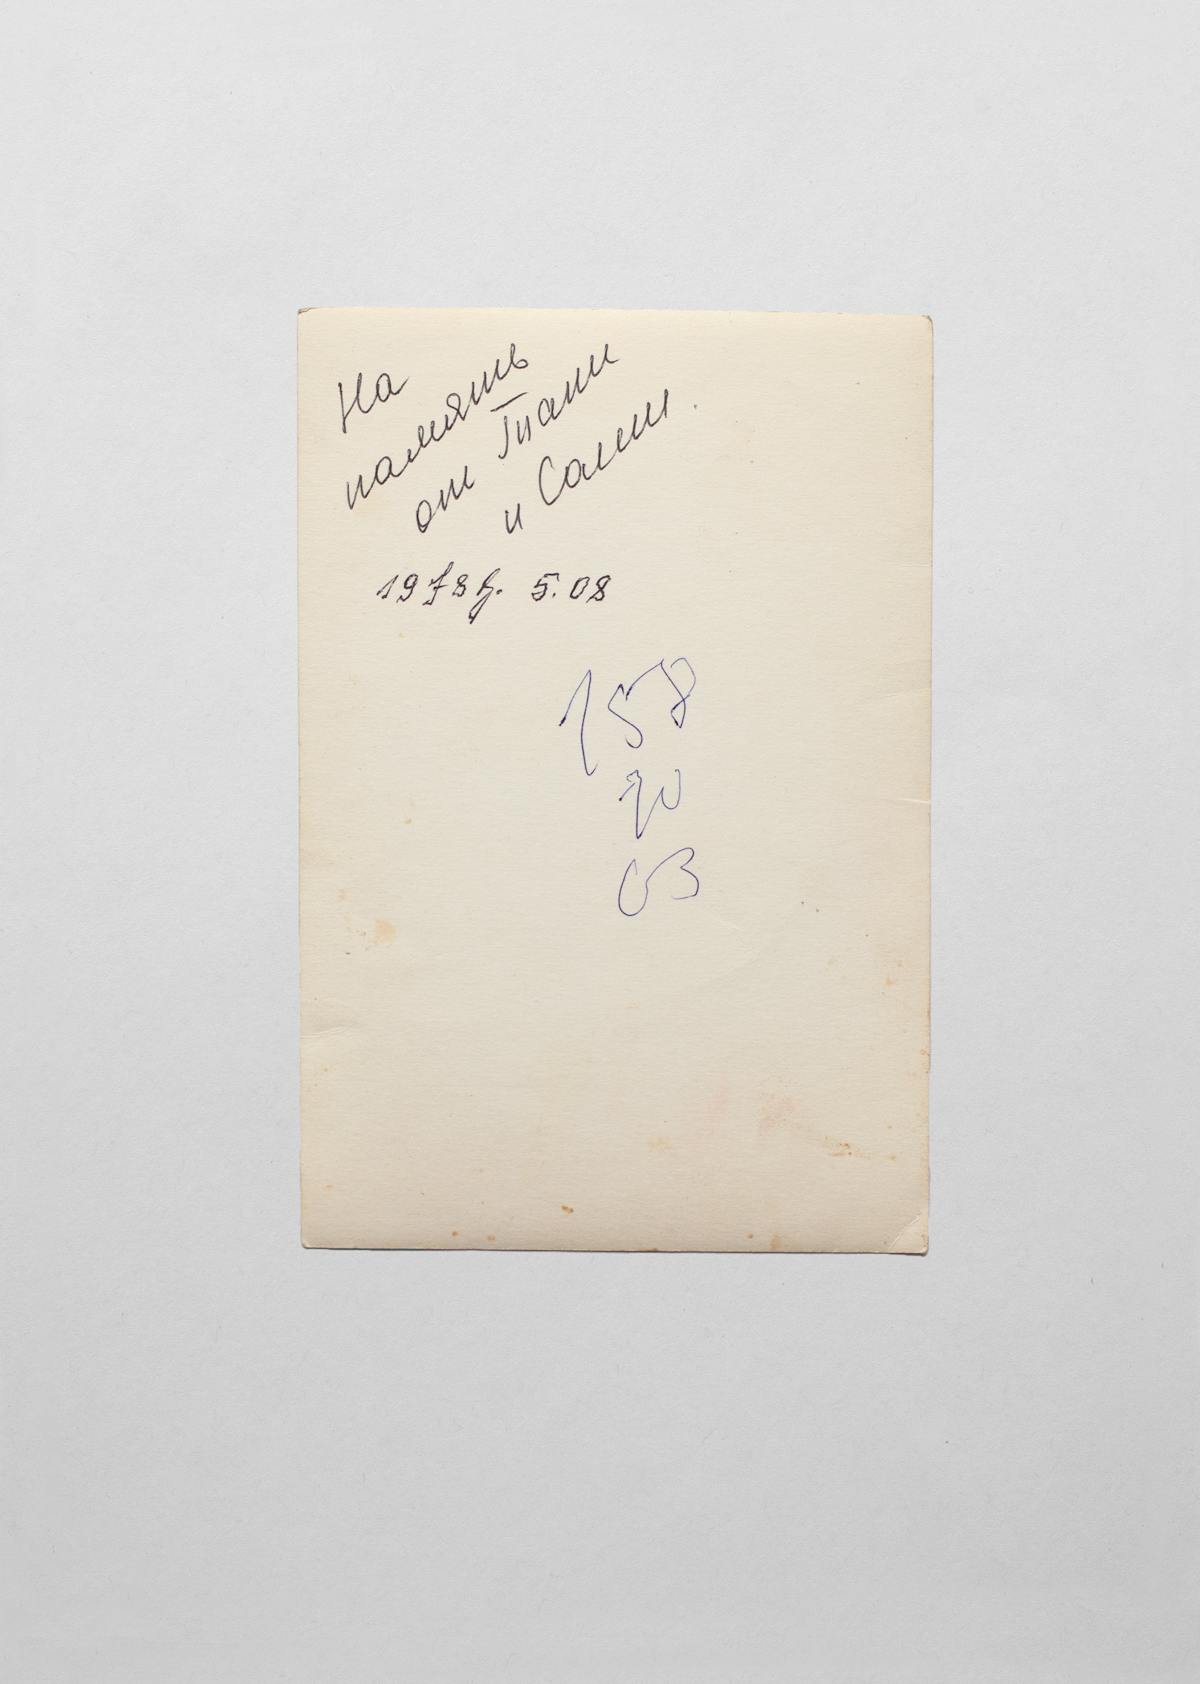 На
память
от Тани
и Саши.
1978 г. 5.08
158
70
03